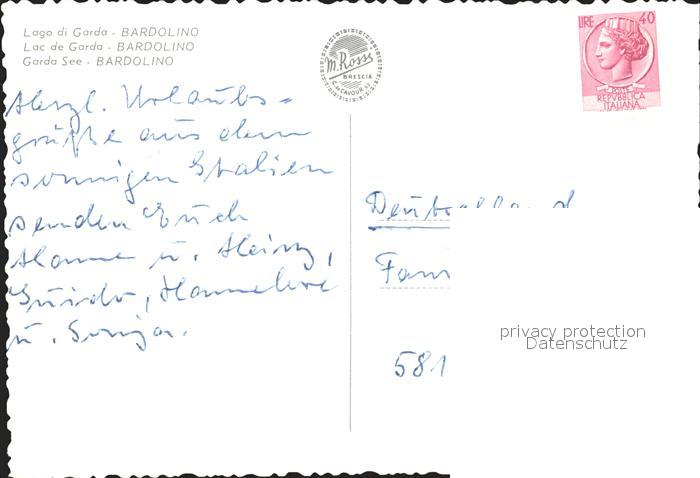 Lago di Garda - BARDOLINO
Lac de Garda - BARDOLINO
Garda See - BARDOLINO
M. Rossi
BRESCIA
C. CAVOUR
LIRE 40
POSTE
REPVBBLICA
ITALIANA
Herzl. Urlaubs=
grüße aus dem
sonnigen Italien
senden Euch
Hanne u. Heinz,
Guido, Hannelore
u. Sonja.
Deutschland
Fam
581
privacy protection
Datenschutz